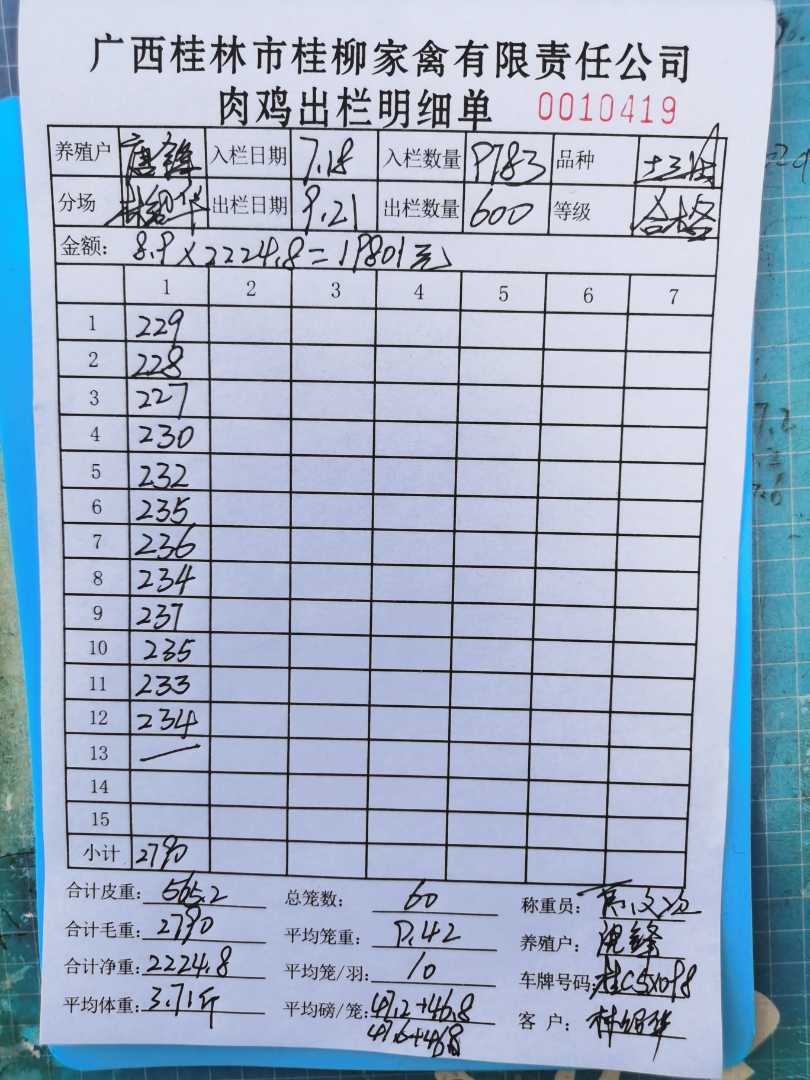 广西桂林市桂柳家禽有限责任公司
肉鸡出栏明细单 0010419
养殖户 唐锋 入栏日期 7.18 入栏数量 9783 品种
分场 出栏日期 9.21 出栏数量 600 等级 合格
金额: 8.9×2224.8=19801元
1 2 3 4 5 6 7
1 229
2 228
3 227
4 230
5 232
6 235
7 236
8 234
9 237
10 235
11 233
12 234
13 —
14
15
小计 2790
合计皮重: 565.2 总笼数: 60 称重员:
合计毛重: 2790 平均笼重: 9.42 养殖户: 唐锋
合计净重: 2224.8 平均笼/羽: 10 车牌号码: 桂C5X098
平均体重: 3.71斤 平均磅/笼: 47.2+46.8 客 户:
47.6+46.8